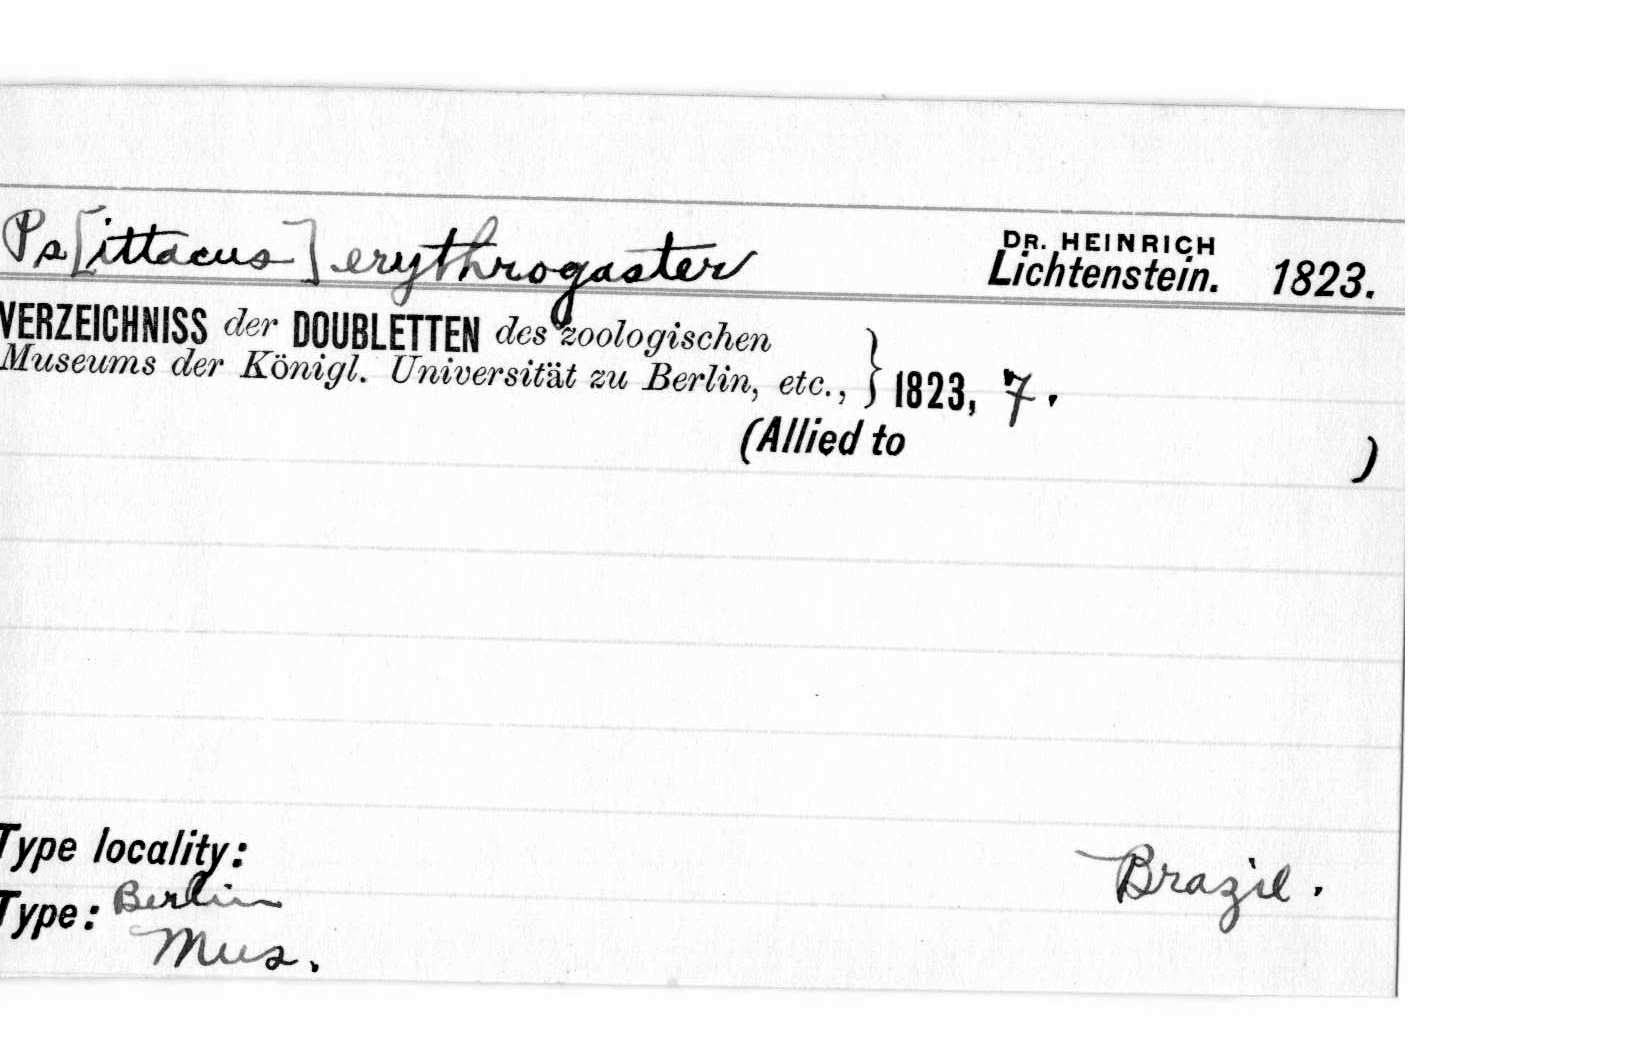 Ps[ittacus] erythrogaster DR. HEINRICH Lichtenstein. 1823.
VERZEICHNISS der DOUBLETTEN des zoologischen
Museums der Königl. Universität zu Berlin, etc., } 1823, 7.
(Allied to )
Type locality: Brazil.
Type: Berlin
Mus.